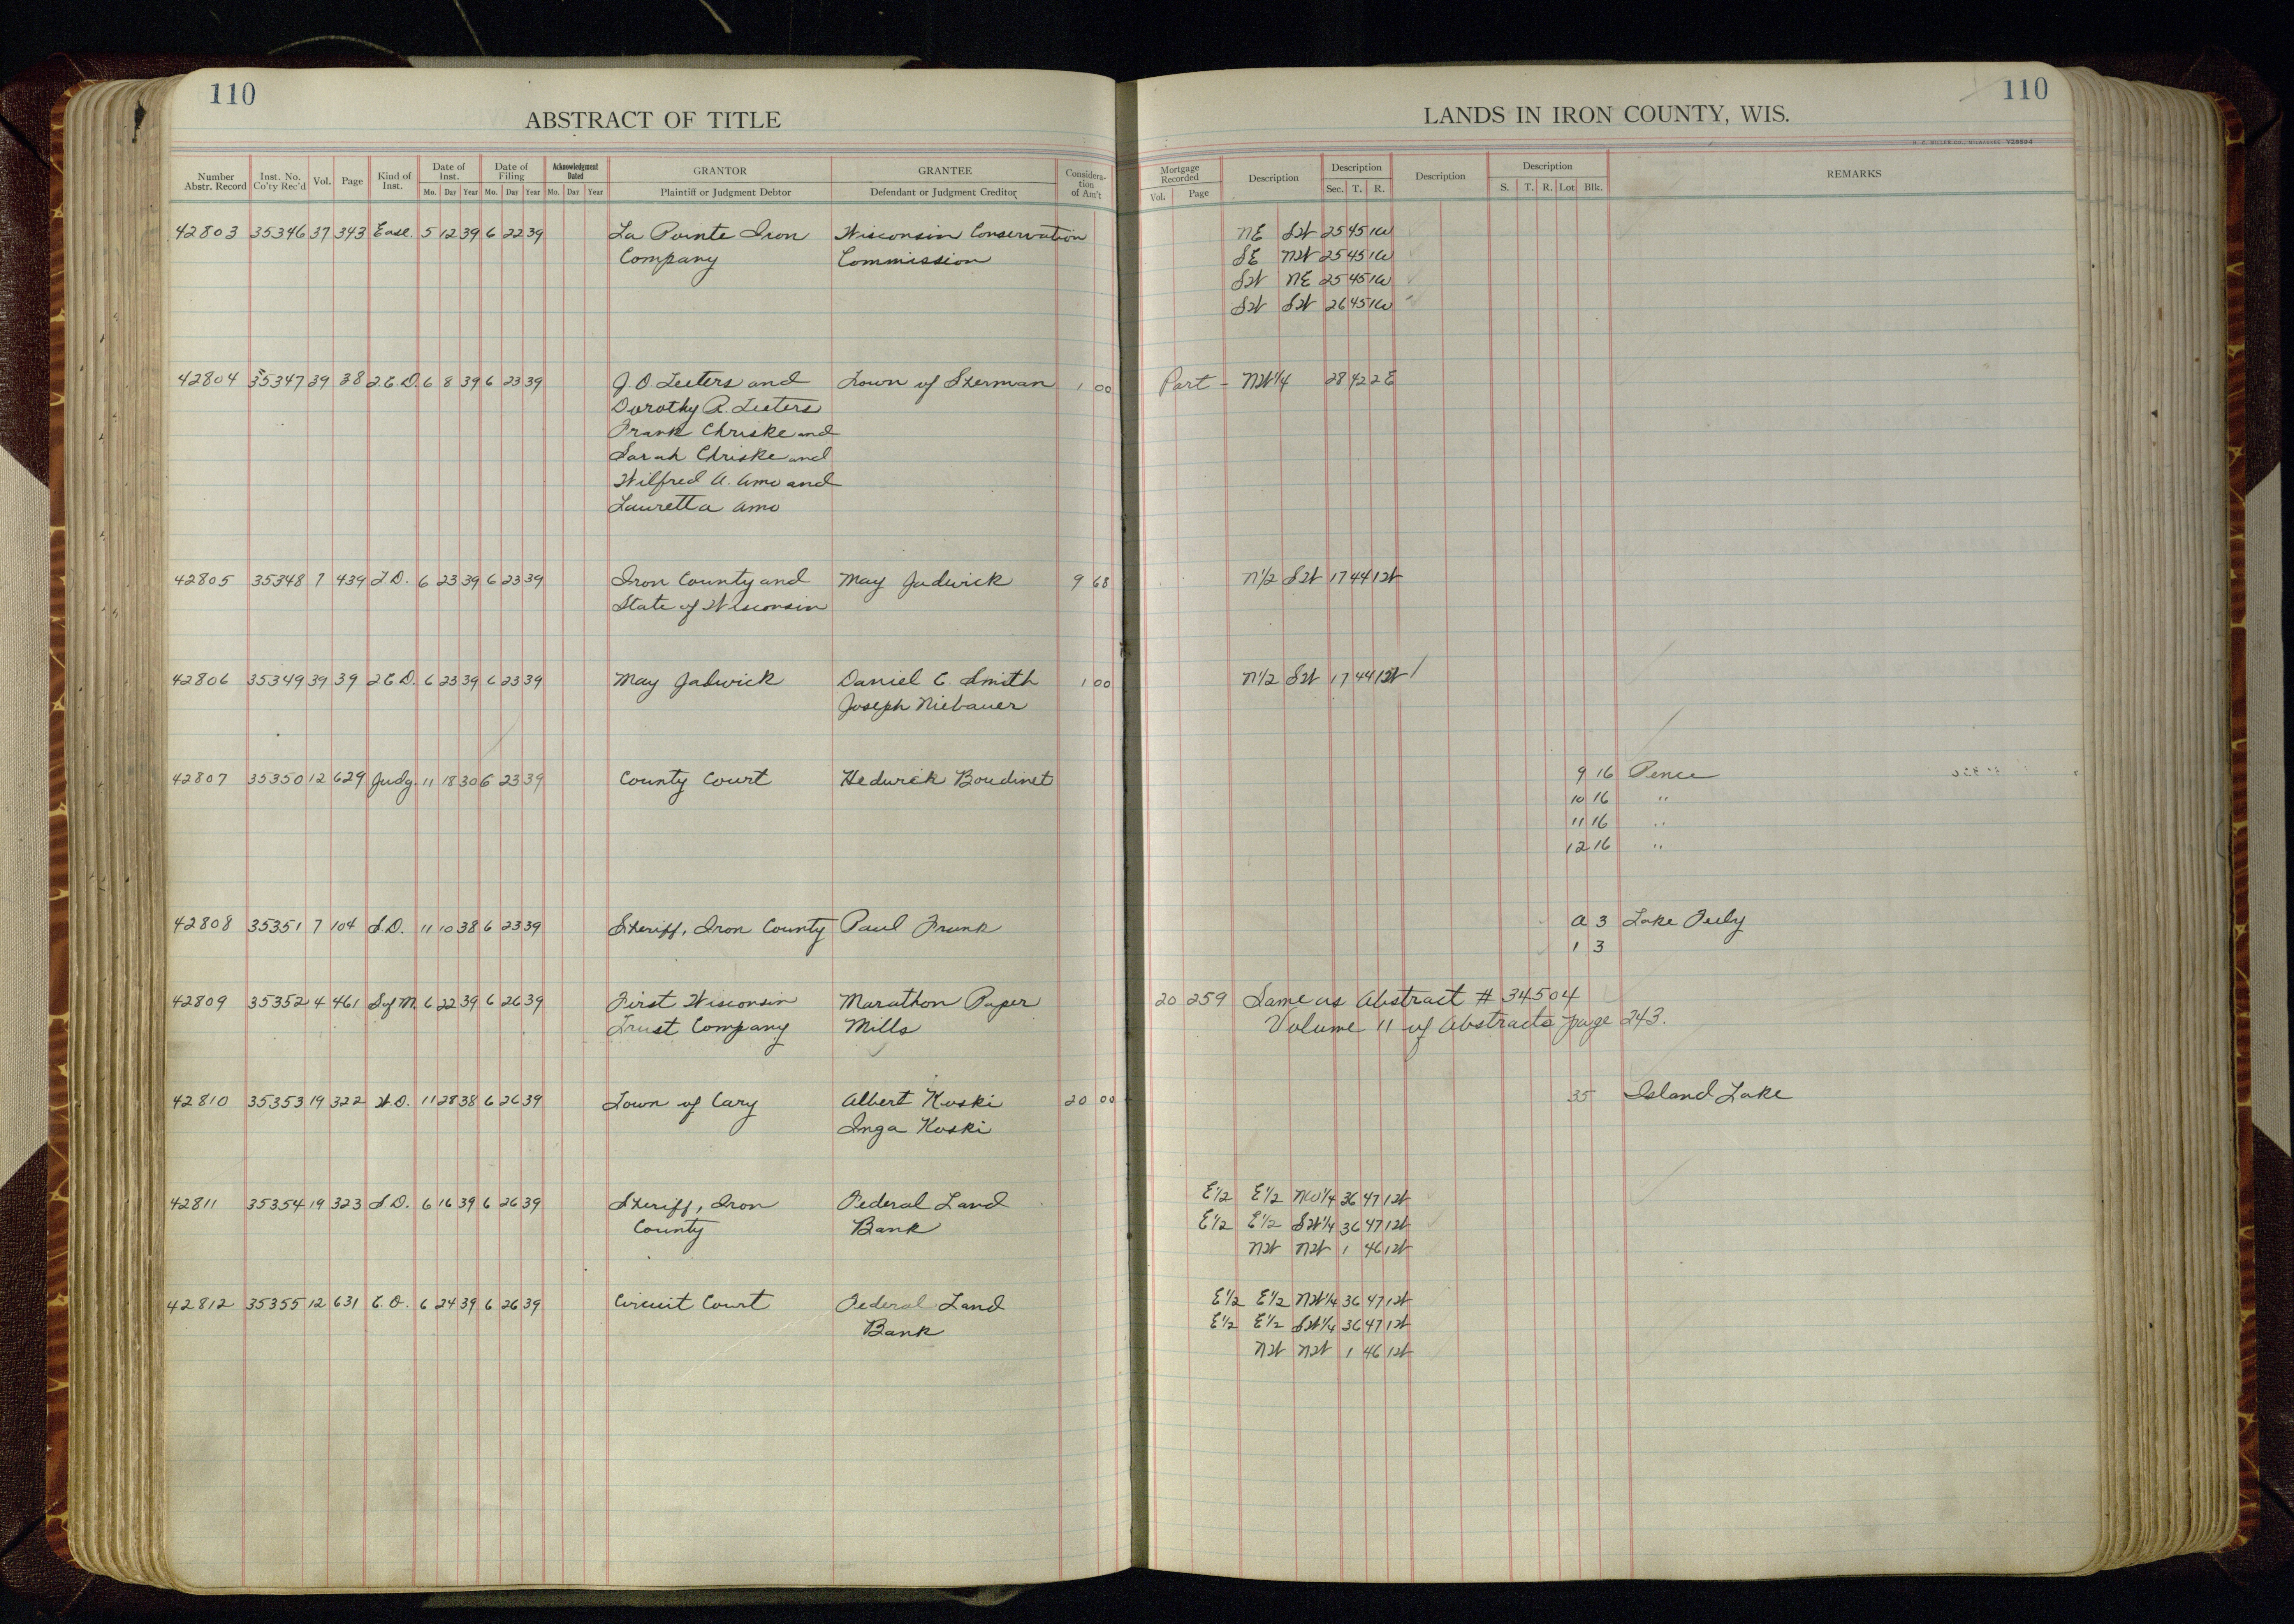 110
ABSTRACT OF TITLE
Number Abstr. Record Inst. No. Co'ty Rec'd Vol. Page Kind of Inst. Date of Inst. Mo. Day Year Date of Filing Mo. Day Year Acknowledgment Dated Mo. Day Year GRANTOR Plaintiff or Judgment Debtor GRANTEE Defendant or Judgment Creditor Consideration of Am't
42803 35346 37 343 Ease. 5 12 39 6 22 39 La Pointe Iron Wisconsin Conservation
Company Commission
42804 35347 39 38 2.C.D. 6 8 39 6 23 39 J.O. Teeters and Town of Sherman 1 00
Dorothy R. Teeters
Frank Chriske and
Sarah Chriske and
Wilfred A. Amo and
Lauretta Amo
42805 35348 7 439 T.D. 6 23 39 6 23 39 Iron County and May Jadwick 9 68
State of Wisconsin
42806 35349 39 39 2C.D. 6 23 39 6 23 39 May Jadwick Daniel C. Smith 1 00
Joseph Niebauer
42807 35350 12 629 Judg. 11 18 30 6 23 39 County Court Hedwick Boudinet
42808 35351 7 104 S.D. 11 10 38 6 23 39 Sheriff, Iron County Paul Frank
42809 35352 4 461 S of M. 6 22 39 6 26 39 First Wisconsin Marathon Paper
Trust Company Mills
42810 35353 19 322 W.D. 11 28 38 6 26 39 Town of Cary Albert Koski 20 00
Inga Koski
42811 35354 19 323 S.D. 6 16 39 6 26 39 Sheriff, Iron Federal Land
County Bank
42812 35355 12 631 C.O. 6 24 39 6 26 39 Circuit Court Federal Land
Bank
110
LANDS IN IRON COUNTY, WIS.
Mortgage Recorded Vol. Page Description Description Sec. T. R. Description Description S. T. R. Lot Blk. REMARKS
NE SW 25 45 1W
SE NW 25 45 1W
SW NE 25 45 1W
SW SW 26 45 1W
Part - NW 1/4 28 42 2E
N 1/2 SW 17 44 1W
N 1/2 SW 17 44 1W
9 16 Pence
10 16 "
11 16 "
12 16 "
A 3 Lake July
1 3
20 259 Same as Abstract # 34504
Volume 11 of Abstracts page 243.
35 Island Lake
E 1/2 E 1/2 NW 1/4 36 47 1W
E 1/2 E 1/2 SW 1/4 36 47 1W
NW NW 1 46 1W
E 1/2 E 1/2 NW 1/4 36 47 1W
E 1/2 E 1/2 SW 1/4 36 47 1W
NW NW 1 46 1W